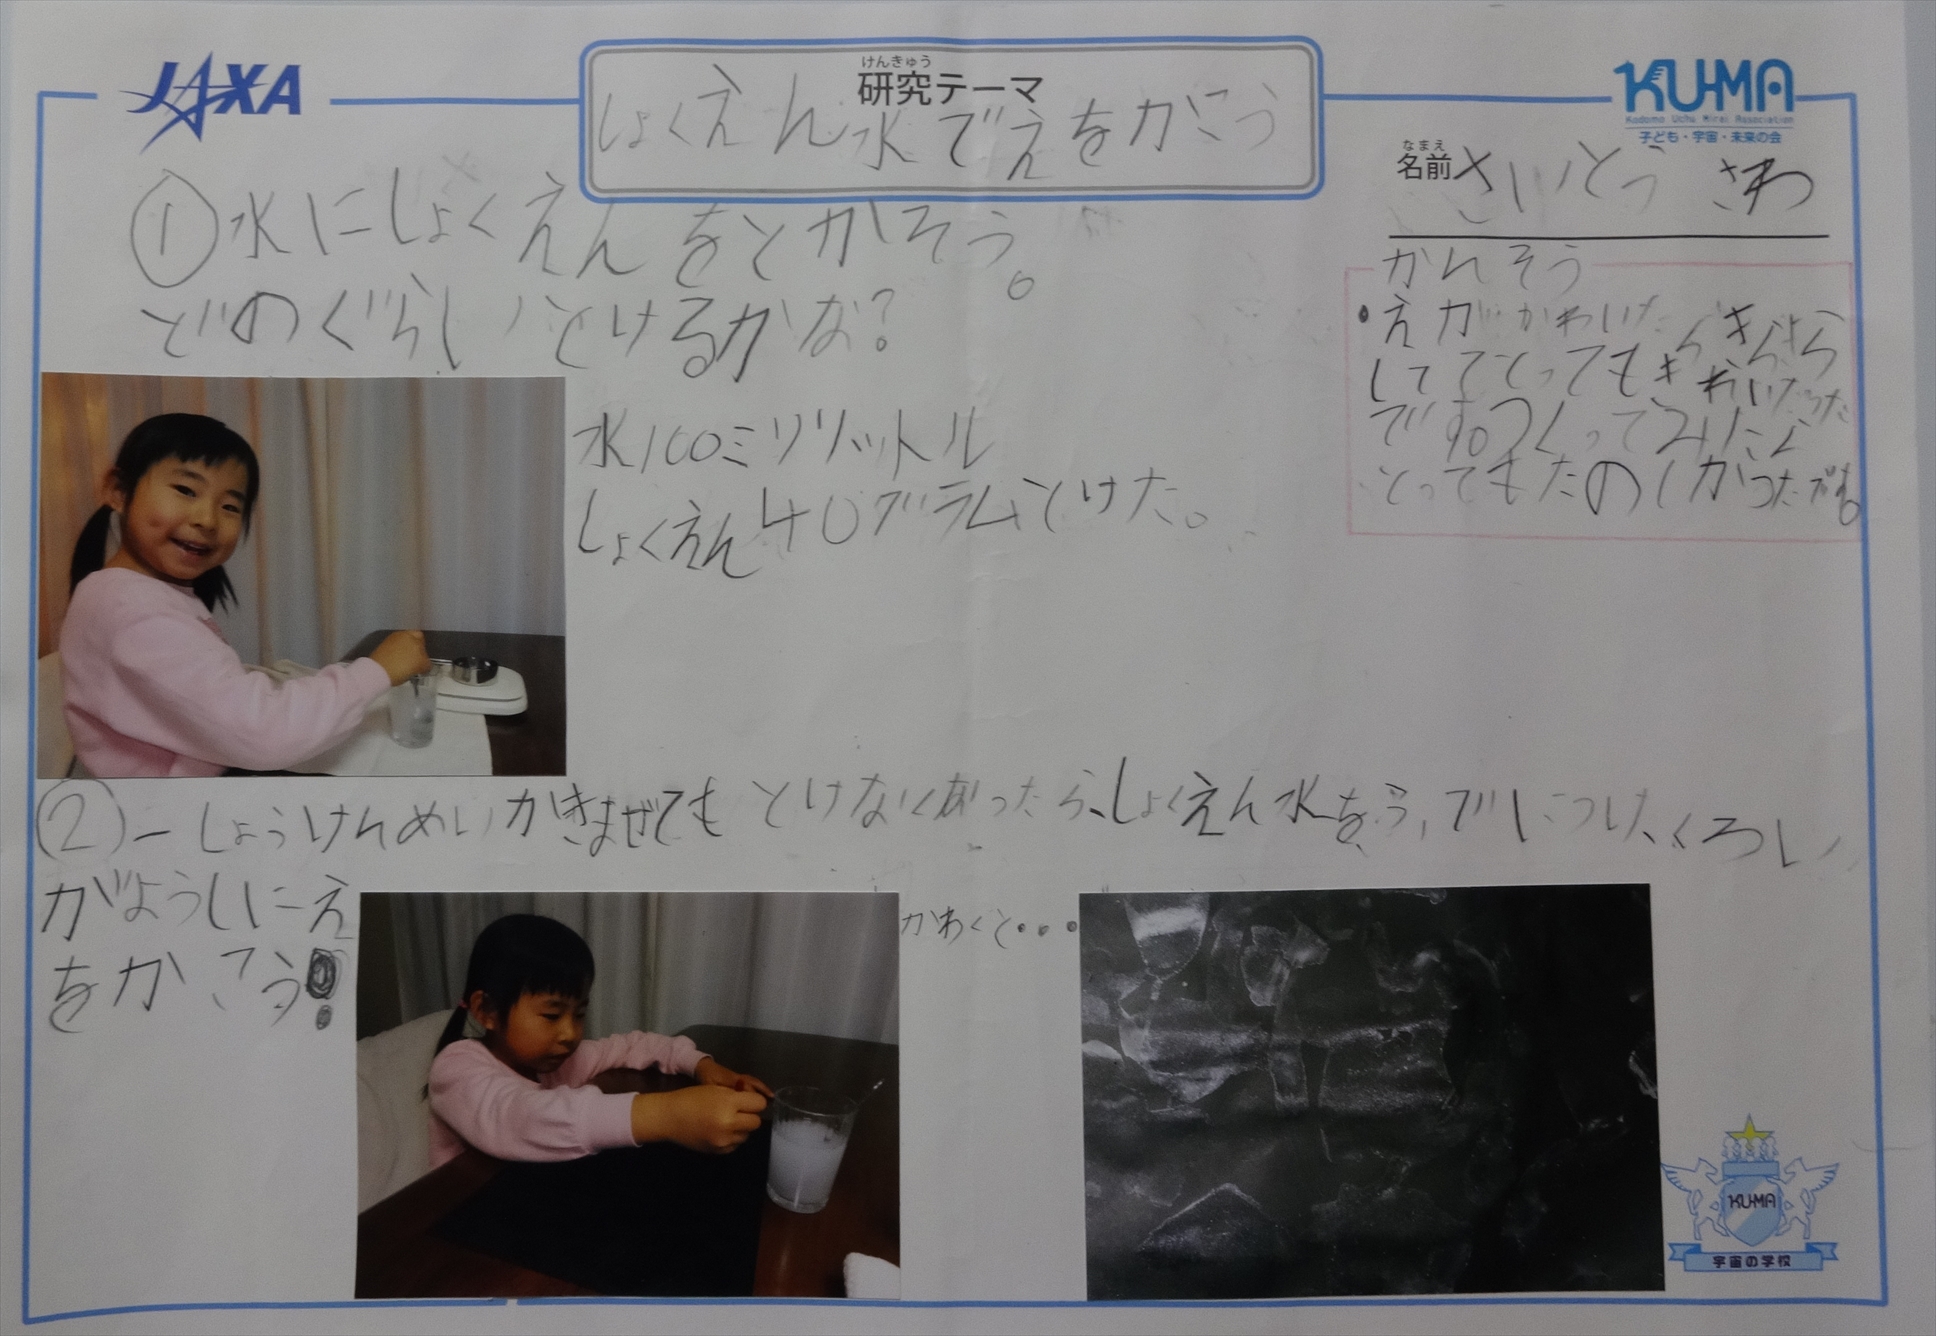 JAXA
けんきゅう
研究テーマ
しょくえん水でえをかこう
KU-MA
Kodomo Uchu Mirai Association
子ども・宇宙・未来の会
なまえ
名前 さいとう さわ
①水にしょくえんをとかそう。
どのぐらいとけるかな?
かんそう
・えがかわいたらきらきら
しててとってもきれいだった
です。つくってみたら
とってもたのしかったです。
水100ミリリットル
しょくえん40グラムとけた。
②一しょうけんめいかきまぜてもとけなくなったら、しょくえん水をふでにつけ、くろい
がようしにえ
をかこう!
かわくと・・・
KU-MA
宇宙の学校